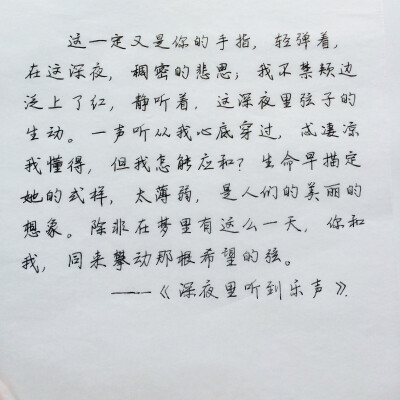 这一定又是你的手指，轻弹着，
在这深夜，稠密的悲思；我不禁颊边
泛上了红，静听着，这深夜里弦子的
生动。一声听从我心底穿过，忒凄凉
我懂得，但我怎能应和？生命早描定
她的式样，太薄弱，是人们的美丽的
想象。除非在梦里有这么一天，你和
我，同来攀动那根希望的弦。
——《深夜里听到乐声》.